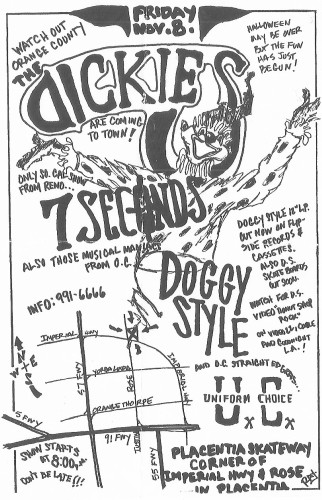 FRIDAY
NOV. 8.
WATCH OUT
ORANGE COUNTY
THE
DICKIES
ARE COMING
TO TOWN!
HALLOWEEN
MAY BE OVER
BUT THE FUN
HAS JUST
BEGUN!
ONLY SO. CAL SHOW
FROM RENO...
7 SECONDS
ALSO THOSE MUSICAL MANIACS
FROM O.C.
DOGGY
STYLE
DOGGY STYLE 12" L.P.
OUT NOW ON FLIP-
SIDE RECORDS &
CASSETTES.
ALSO D.S.
SKATE BOARDS
OUT SOON.
WATCH FOR D.S.
VIDEO "DONUT SHOP
ROCK"
ON VIDEO 1, CABLE
AND GOODNIGHT
L.A.!
INFO: 991-6666
AND O.C. STRAIGHT EDGERS...
U.C.
UNIFORM CHOICE
X X
IMPERIAL HWY
YORBA LINDA
ORANGETHORPE
57 FWY
ROSE
IMPERIAL HWY
TUSTIN
5 FWY
91 FWY
55 FWY
N
W E
S
SHOW STARTS
AT 8:00,
DON'T BE LATE!!!
PLACENTIA SKATEWAY
CORNER OF
IMPERIAL HWY & ROSE
IN PLACENTIA